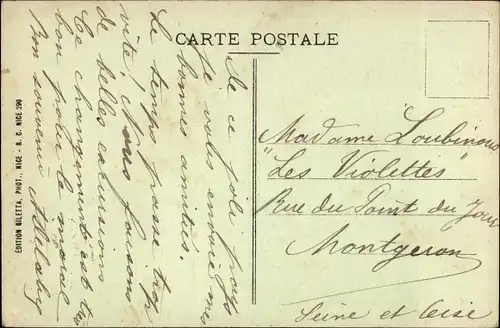 CARTE POSTALE
De ce joli pays
je vous envoie mes
bonnes amitiés.
Le temps passe trop
vite! Nous faisons
de belles excursions
Ce changement est très
bon pour le moral
Bon souvenir
Madame Loubinoux
"Les Violettes"
Rue du Point du Jour
Montgeron
Seine et Oise
ÉDITION GILETTA, PHOT., NICE - R. C. NICE 290